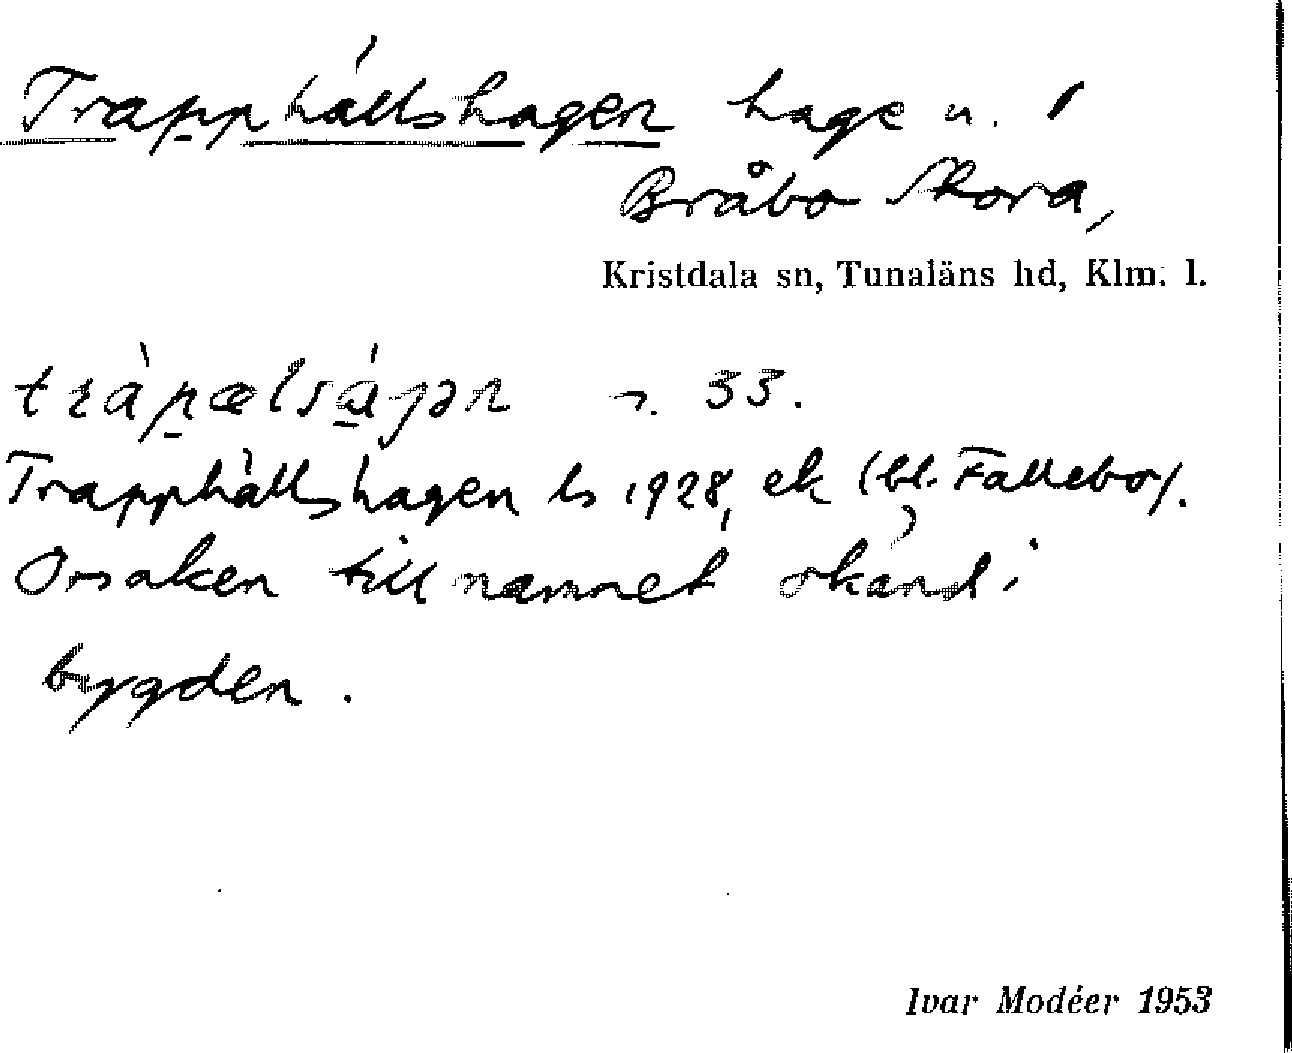 Trapphällshagen hage u. 1
Bråbo Stora,
Kristdala sn, Tunaläns hd, Klm. l.
tràp̱ælsá̱gən n. 33.
Trapphällshagen ls 1928, ek (bl. Fallebo).
Orsaken till namnet okänd i
bygden.
Ivar Modéer 1953